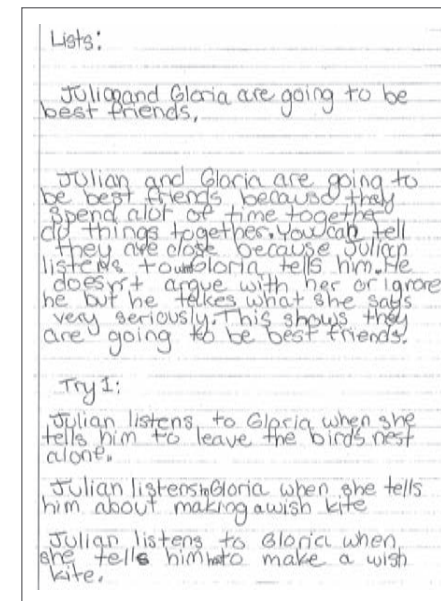 Lists:
Julian and Gloria are going to be
best friends.
Julian and Gloria are going to
be best friends because they
spend alot of time together
do things together. You can tell
they are close because Julian
listens to what Gloria tells him. He
doesn't argue with her or ignore
he but he takes what she says
very seriously. This shows they
are going to be best friends.
Try 1:
Julian listens to Gloria when she
tells him to leave the birds nest
alone.
Julian listens to Gloria when she tells
him about making a wish kite
Julian listens to Gloria when
she tells him how to make a wish
kite.